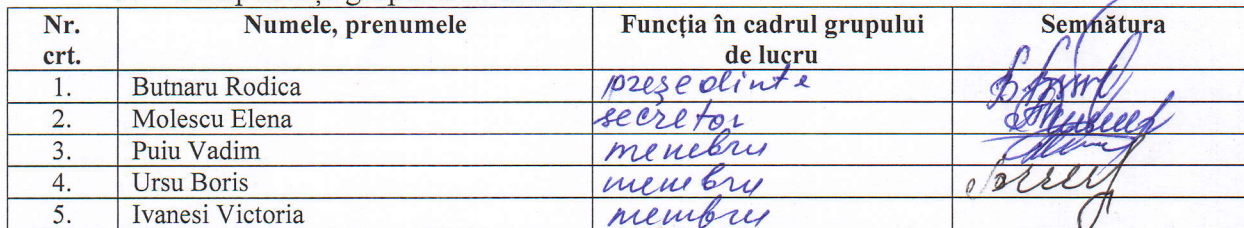 Nr. crt. Numele, prenumele Funcția în cadrul grupului de lucru Semnătura
1. Butnaru Rodica președinte
2. Molescu Elena secretor
3. Puiu Vadim menebru
4. Ursu Boris membru
5. Ivanesi Victoria membru